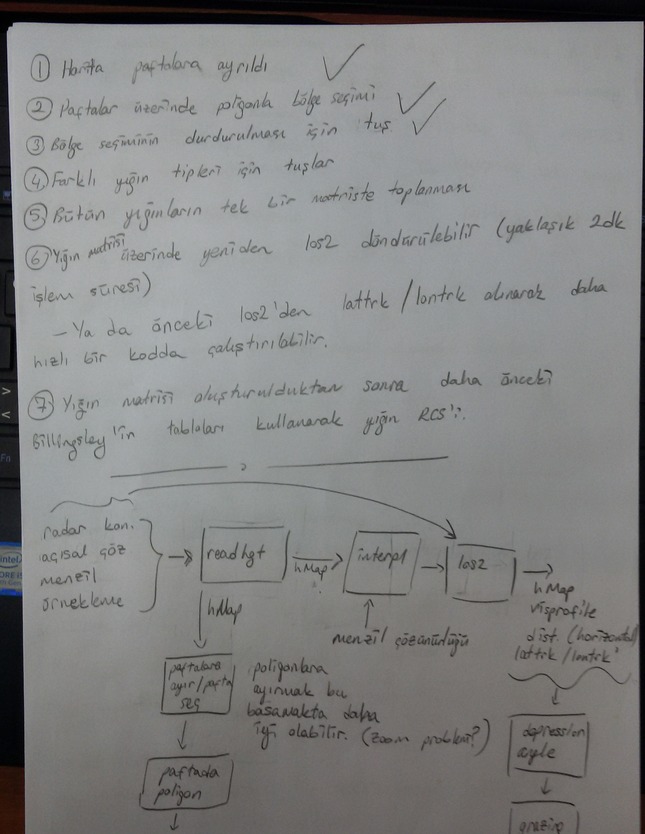 1 Harita paftalara ayrıldı
2 Paftalar üzerinde poligonla bölge seçimi
3 Bölge seçiminin durdurulması için tuş
4 Farklı yığın tipleri için tuşlar
5 Bütün yığınların tek bir matriste toplanması
6 Yığın matrisi üzerinde yeniden los2 döndürülebilir (yaklaşık 2dk
işlem süresi)
– Ya da önceki los2'den lattrk / lontrk alınarak daha
hızlı bir kodda çalıştırılabilir.
7 Yığın matrisi oluşturulduktan sonra daha önceki
Billingsley'in tabloları kullanarak yığın RCS'i.
radar kon.
açısal çöz
menzil
örnekleme
readhgt
hMap
interp1
los2
hMap
visprofile
dist. (horizontal)
lattrk / lontrk
hMap
menzil çözünürlüğü
paftalara
ayır/pafta
seç
poligonlara
ayırmak bu
basamakta daha
iyi olabilir. (zoom problemi?)
depression
angle
paftada
poligon
grazing
>
<
Fn
intel
CORE i5